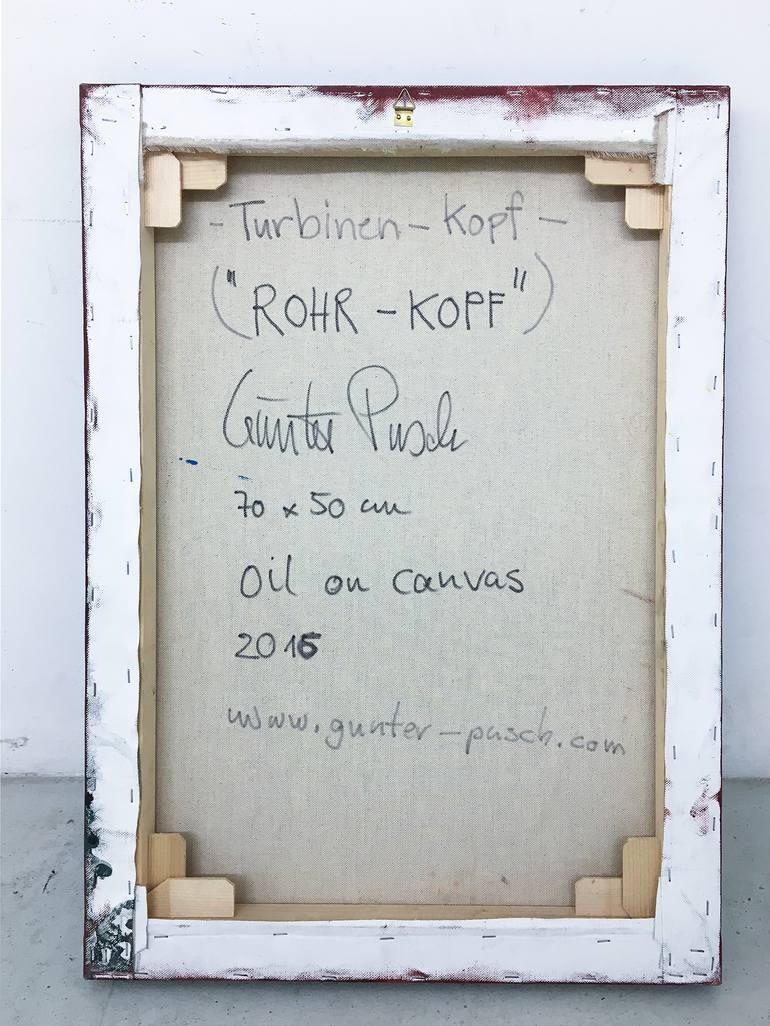 - Turbinen - Kopf -
("ROHR - KOPF")
Günter Pusch
70 x 50 cm
Oil on canvas
2016
www.gunter-pusch.com